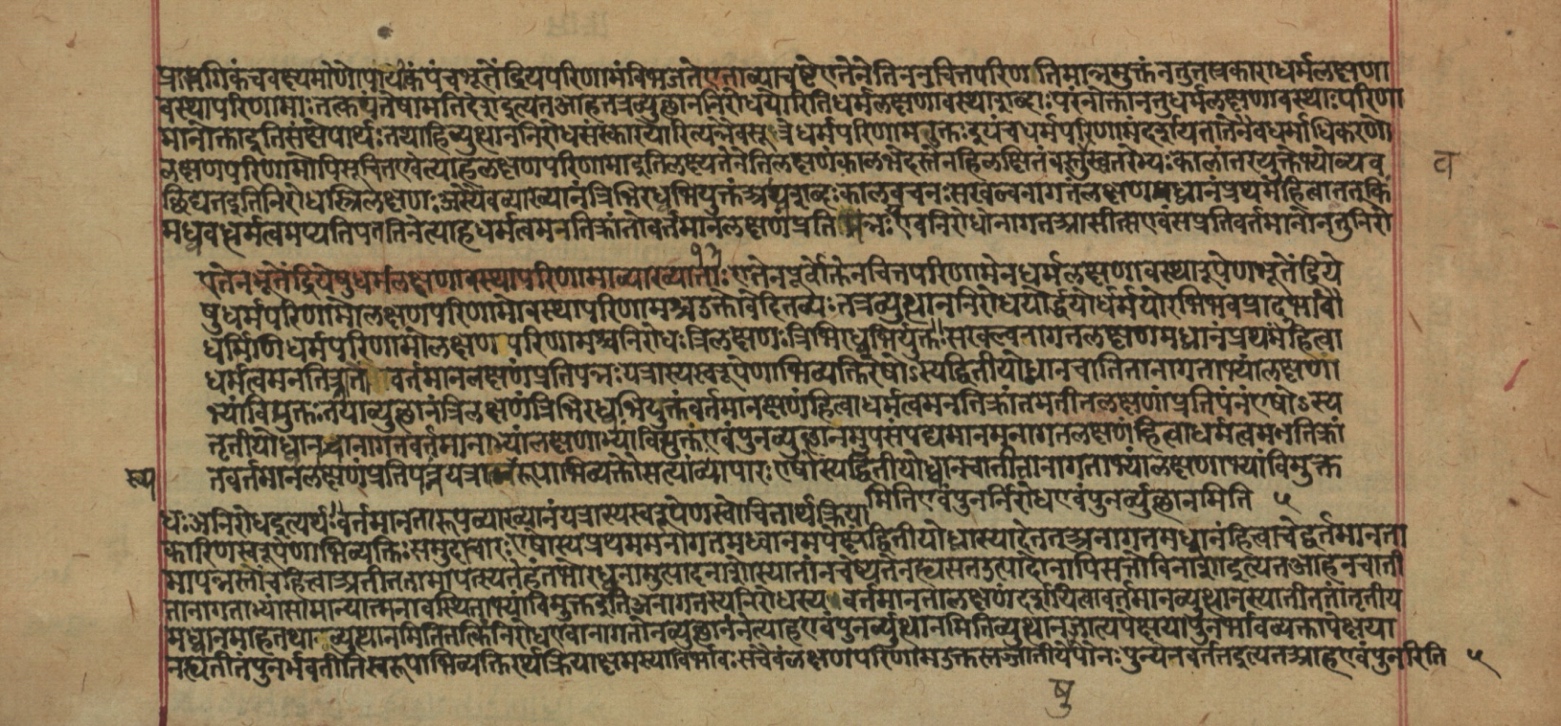 प्रासंगिकं च वक्ष्यमाणौपयिकं पंचभूतेंद्रियपरिणामं विभजते एता व्याचष्टे एतेनेति ननु चित्तपरिणतिमात्रमुक्तं न तु तत्प्रकारा धर्मलक्षणा
वस्थापरिणामाः तत्कथं तेषामतिदेश इत्यत आह तत्र व्युत्थाननिरोधयोरिति धर्मलक्षणावस्थाशब्दाः परं नोक्ता न तु धर्मलक्षणावस्थाः परिणा
मा नोक्ता इति संक्षेपार्थः तथाहि व्युत्थाननिरोधसंस्कारयोरित्यत्रैव सूत्रे धर्मपरिणाम उक्तः इयं च धर्मपरिणामं दर्शयता तेनैव धर्माधिकरणो
लक्षणपरिणामोपि सूचित एवेत्याह लक्षणपरिणाम इति लक्ष्यतेनेनेति लक्षणं कालभेदस्तेन हि लक्षितं वस्तु वस्त्वंतरेभ्यः कालांतरयुक्तेभ्यो व्यव
छिद्यत इति निरोधस्त्रिलक्षणः अस्यैव व्याख्यानं त्रिभिरध्वभिर्युक्तं अध्वशब्दः कालवचनः स खल्वनागतलक्षणमध्वानं प्रथमं हित्वा तत्किं
मध्ववद्धर्मत्वमप्यतिपतति नेत्याह धर्मत्वमनतिक्रांतो वर्तमानलक्षणं प्रतिपन्नः एव निरोधोनागत आसीत्स एव संप्रति वर्तमानो न तु निरो
एतेन भूतेंद्रियेषु धर्मलक्षणावस्थापरिणामा व्याख्याताः १३ एतेन पूर्वोक्तेन चित्तपरिणामेन धर्मलक्षणावस्थारूपेण भूतेंद्रिये
षु धर्मपरिणामो लक्षणपरिणामोवस्थापरिणामश्च उक्तो वेदितव्यः तत्र व्युथाननिरोधयोर्द्धयोर्धर्मयोरभिभवप्रादुर्भावौ
धर्मिणि धर्मपरिणामो लक्षणपरिणामश्च निरोधः त्रिलक्षणः त्रिभिरध्वभिर्युक्तः स खल्वनागतलक्षणमध्वानं प्रथमं हित्वा
धर्मत्वमनतिक्रांतो वर्तमानलक्षणं प्रतिपन्नः यत्रास्य स्वरूपेणाभिव्यक्तिरेषोऽस्य द्वितीयोध्वा न चातितानागताभ्यां लक्षणा
भ्यां वियुक्तः तथा व्युत्थानं त्रिलक्षणं त्रिभिरध्वभिर्युक्तं वर्तमानक्षणं हित्वा धर्मत्वमनतिक्रांतमतीतलक्षणां प्रतिपंनं एषोऽस्य
तृतीयोध्वा न चानागतवर्तमानाभ्यां लक्षणाभ्यां वियुक्तं एवं पुनर्व्युत्थानमुपसंपद्यमानमनागतलक्षणं हित्वा धर्मत्वमनतिक्रां
तं वर्तमानलक्षणं प्रतिपन्नं यत्रास्य स्वरूपाभिव्यक्तौ सत्यां व्यापारः एषोस्य द्वितीयोध्वा न चातीतानागताभ्यां लक्षणाभ्यां वियुक्त
मिति एवं पुनर्निरोध एवं पुनर्व्युत्थानमिति ५
धः अनिरोध इत्यर्थः वर्तमानतारूपव्याख्यानं यत्रास्य स्वरूपेण स्वोचितार्थक्रिया
कारिणा स्वरूपेणाभिव्यक्तिः समुदाचारः एषोस्य प्रथममनागतमध्वानमपेक्ष्य द्वितीयोध्वा स्यादेतत् अनागतमध्वानं हित्वा चेद्वर्तमानता
मापन्नस्तां च हित्वा अतीततामापत्स्यते हंत भो अध्वनामुत्पादनाशौ स्यातां न चेष्यते न ह्यसत उत्पादो नापि सतो विनाश इत्यत आह न चाती
तानागताभ्यां सामान्यात्मनावस्थिताभ्यां वियुक्त इति अनागतस्य निरोधस्य वर्तमानतालक्षणं दर्शयित्वा वर्तमानव्युथानस्यातीततां तृतीय
मध्वानमाह तथा व्युथानमिति तत्किं निरोध एवानागतो न व्युत्थानं नेत्याह एवं पुनर्व्युथानमिति व्युथानजात्यपेक्षया पुनर्भावो न व्यक्त्यपेक्षया
न ह्यतीतं पुनर्भवतीति स्वरूपाभिव्यक्तिरर्थक्रियाक्षमस्याविर्भावः स चैवं लक्षणपरिणाम उक्तस्तज्जातीयेषु पौनःपुन्येन वर्तत इत्यत आह एवं पुनरिति ५
व
षु